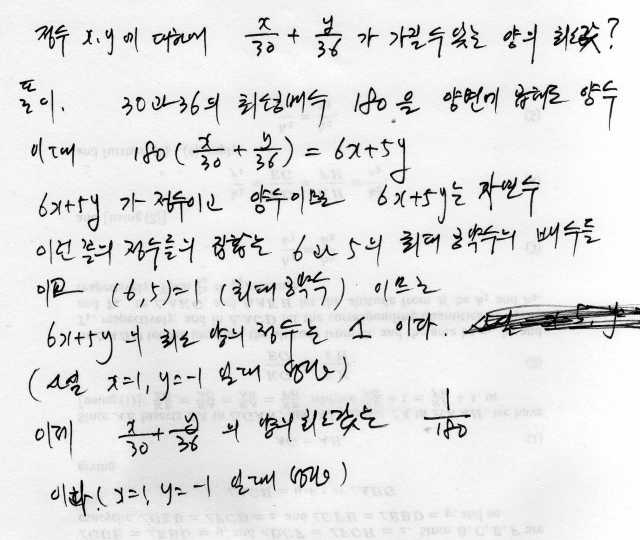 정수 x, y 에 대하여 x/30 + y/36 가 가질 수 있는 양의 최소값?
풀이. 30과 36의 최소공배수 180을 양변에 곱해도 양수
이때 180 ( x/30 + y/36 ) = 6x+5y
6x+5y 가 정수이고 양수이므로 6x+5y는 자연수
이런 꼴의 정수들의 집합은 6과 5의 최대공약수의 배수들
이고 (6, 5)=1 (최대공약수) 이므로
6x+5y 의 최소 양의 정수는 1 이다.
x=1, y=-1 일 때
이제 x/30 + y/36 의 양의 최소값은 1/180
이다. (x=1, y=-1 일 때